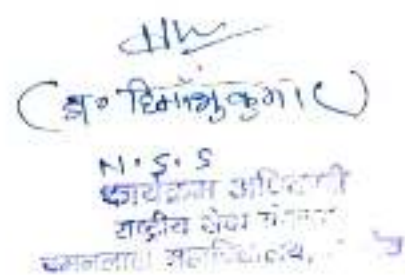 (डॉ० हिमांशु कुमार)
N.S.S
कार्यक्रम अधिकारी
राष्ट्रीय सेवा योजना
चमनलाल महाविद्यालय,